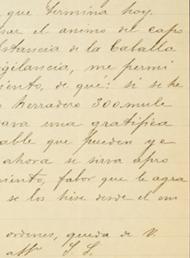 que termina hoy
sar el animo del capo
stancia de la Caballa
igilancia, me permi
iento, de qué: si se he
Herradero 300 mule
ara una gratifica
able que pueden y e
ahora se sirva apro
miento, fabor que le agra
se los hise desde el em
ordenes, queda de V.
S. S.